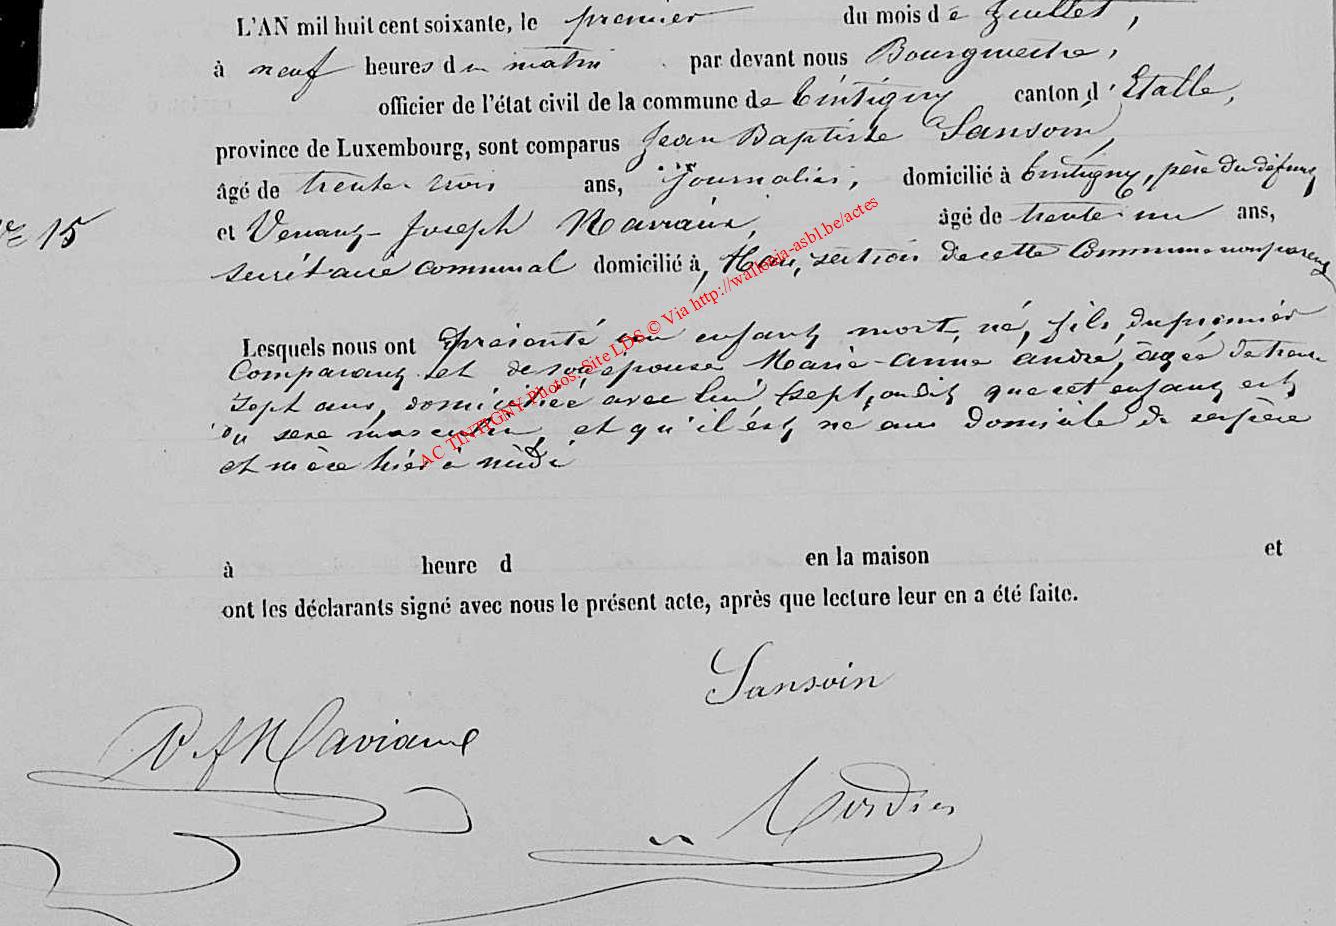 L'AN mil huit cent soixante, le premier du mois de Juillet,
à neuf heures du matin par devant nous Bourgmestre,
officier de l'état civil de la commune de Tintigny canton d'Etalle,
province de Luxembourg, sont comparus Jean Baptiste Sansoin,
âgé de trente-trois ans, Journalier, domicilié à Tintigny, père du défunt
N° 15
et Venant-Joseph Maviaux, âgé de trente-un ans,
secrétaire communal domicilié à, Han, section de cette Commune non parent
Lesquels nous ont présenté un enfant mort né, fils du premier
Comparant et de son épouse Marie-Anne André, âgée de trente
sept ans, domiciliée avec lui que cet enfant est
du sexe masculin et qu'il est né au domicile de ses père
et mère hier à midi
à heure d en la maison et
ont les déclarants signé avec nous le présent acte, après que lecture leur en a été faite.
Sansoin
AC TINTIGNY Photos: Site LDS © Via http://wallonia-asbl.be/actes